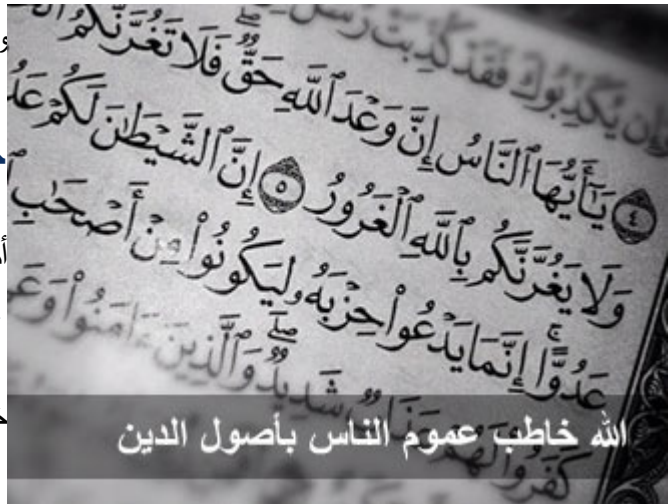 وَإِن يُكَذِّبُوكَ فَقَدْ كُذِّبَتْ رُسُلٌ
٤ يَٰٓأَيُّهَا ٱلنَّاسُ إِنَّ وَعْدَ ٱللَّهِ حَقٌّ فَلَا تَغُرَّنَّكُمُ
وَلَا يَغُرَّنَّكُم بِٱللَّهِ ٱلْغَرُورُ ٥ إِنَّ ٱلشَّيْطَٰنَ لَكُمْ
عَدُوٌّ فَٱتَّخِذُوهُ عَدُوًّا إِنَّمَا يَدْعُوا۟ حِزْبَهُۥ لِيَكُونُوا۟ مِنْ أَصْحَٰبِ
كَفَرُوا۟ لَهُمْ عَذَابٌ شَدِيدٌ وَٱلَّذِينَ ءَامَنُوا۟
الله خاطب عموم الناس بأصول الدين